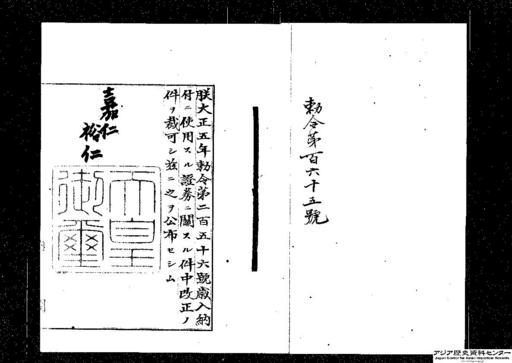 勅令第百六十五號
朕大正五年勅令第二百五十六號歲入納
付ニ使用スル證券ニ關スル件中改正ノ
件ヲ裁可シ玆ニ之ヲ公布セシム
嘉仁
裕仁
天皇
御璽
アジア歴史資料センター
Japan Center for Asian Historical Records